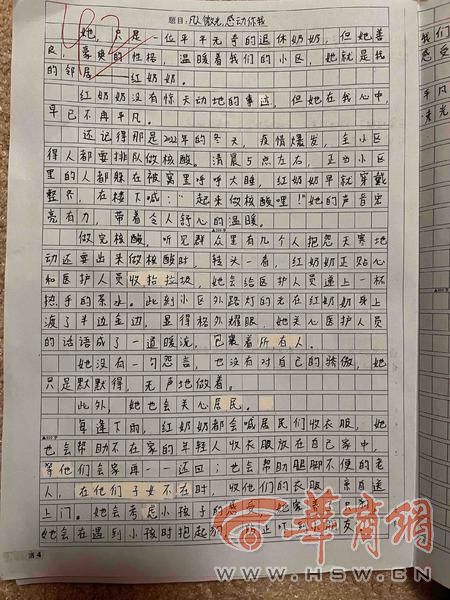 题目：凡人微光，感动你我
42
她，只是一位平平无奇的退休奶奶，但她善
良、豪爽的性格，温暖着我们的小区，她就是我
的邻居——红奶奶。
红奶奶没有惊天动地的事迹，但她在我心中，
早已不再平凡。
还记得那是2022年的冬天，疫情爆发，全小区
得人都要排队做核酸。清晨5点左右，正当小区
里的人都躲在被窝里呼呼大睡，红奶奶早就穿戴
整齐，在楼下喊："起来做核酸哩！"她的声音宏
亮有力，带着令人舒心的温暖。
做完核酸，听见群众里有几个人抱怨天寒地
动还要出来做核酸时，转头一看，红奶奶正贴心
和医护人员收拾垃圾，她会给医护人员递上一杯
热乎的茶水。此刻小区外路灯的光在红奶奶身上
渡了半边金边，显得格外耀眼，她关心医护人员
的话语成了一道暖流，包裹着所有人。
她没有一句怨言，也没有对自己的骄傲，她
只是默默得，无声地做着。
此外，她也会关心居民。
每逢下雨，红奶奶都会喊居民们收衣服，她
也会帮助不在家的年轻人收衣服放在自己家中，
等他们会家再一一还回；也会帮助腿脚不便的老
人，在他们子女不在时，收他们的衣服，亲自送
上门。她会考虑小孩子的感受，她家
她会在遇到小孩时抱起
我们
感受
平凡
凑光
华商网
WWW.HSW.CN